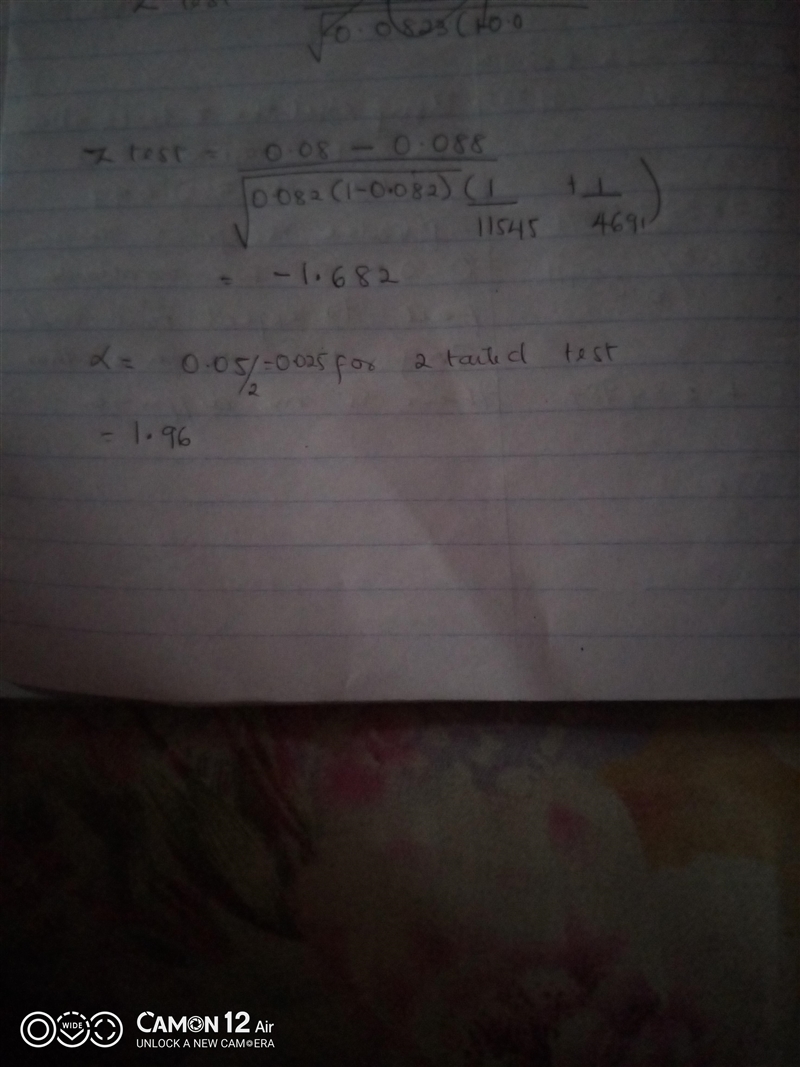 √0.0823(1-0.0
Z test = 0.08 - 0.088
√0.082(1-0.082)(1 + 1)
11545 4691
= -1.682
α = 0.05/2=0.025 for 2 tailed test
= 1.96
WIDE CAMON 12 Air
UNLOCK A NEW CAMERA